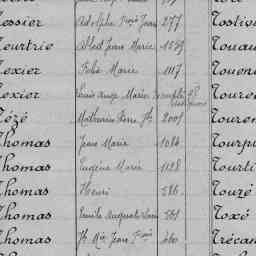 Tessier Adolphe Fçois Jean 277 Tostiv
Meurtrie Albert Jean Marie 1089 Touau
Texier Félix Marie 1117 Touen
Texier Louis Ange Marie Toure
Zézé Mathurin Pierre 2001 Touren
Thomas Jean Marie 1084 Tourp
Thomas Eugène Marie 1128 Tourti
Thomas Henri 586 Touzé
Thomas Emile Auguste 581 Toxé
Thomas Jean 460 Trécan